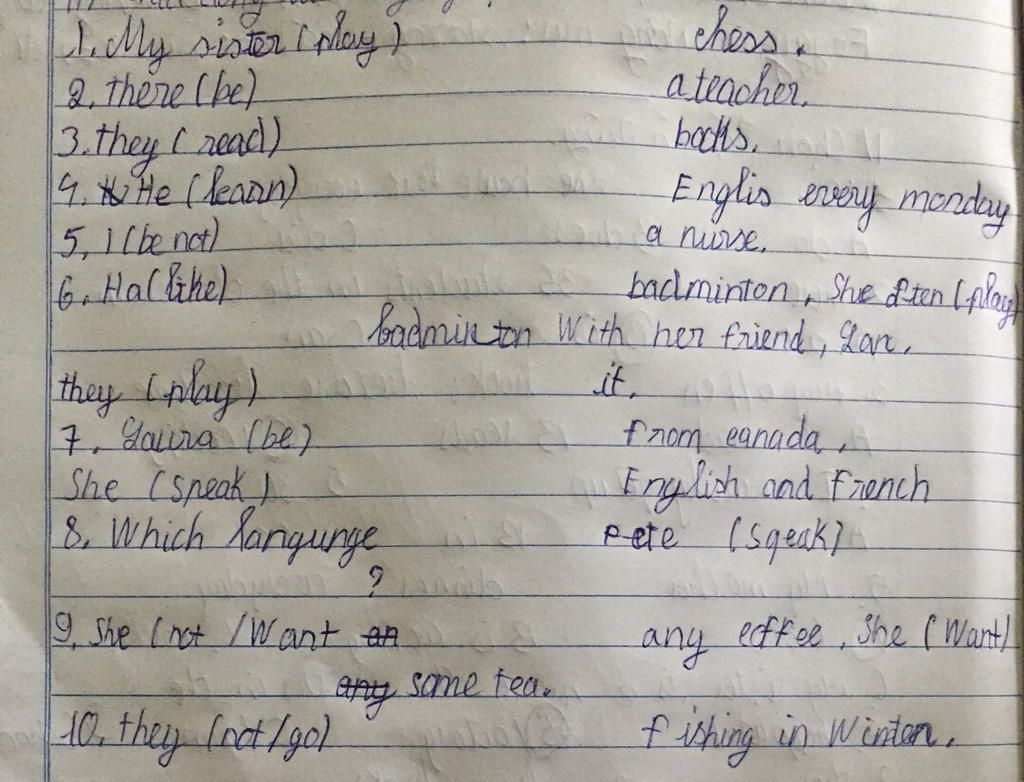 1. My sister (play) chess.
2. there (be) a teacher.
3. they (read) books.
4. He (learn) Englis every monday
5, I (be not) a nurse.
6. Ha (like) badminton, She often (play)
badminton With her friend, Lan.
they (play) it.
7, Laura (be) from canada,
She (speak) English and French
8. Which langunge Pete (speak)
?
9. She (not / Want any coffee, She (Want)
some tea.
10, they (not/go) fishing in Winter.